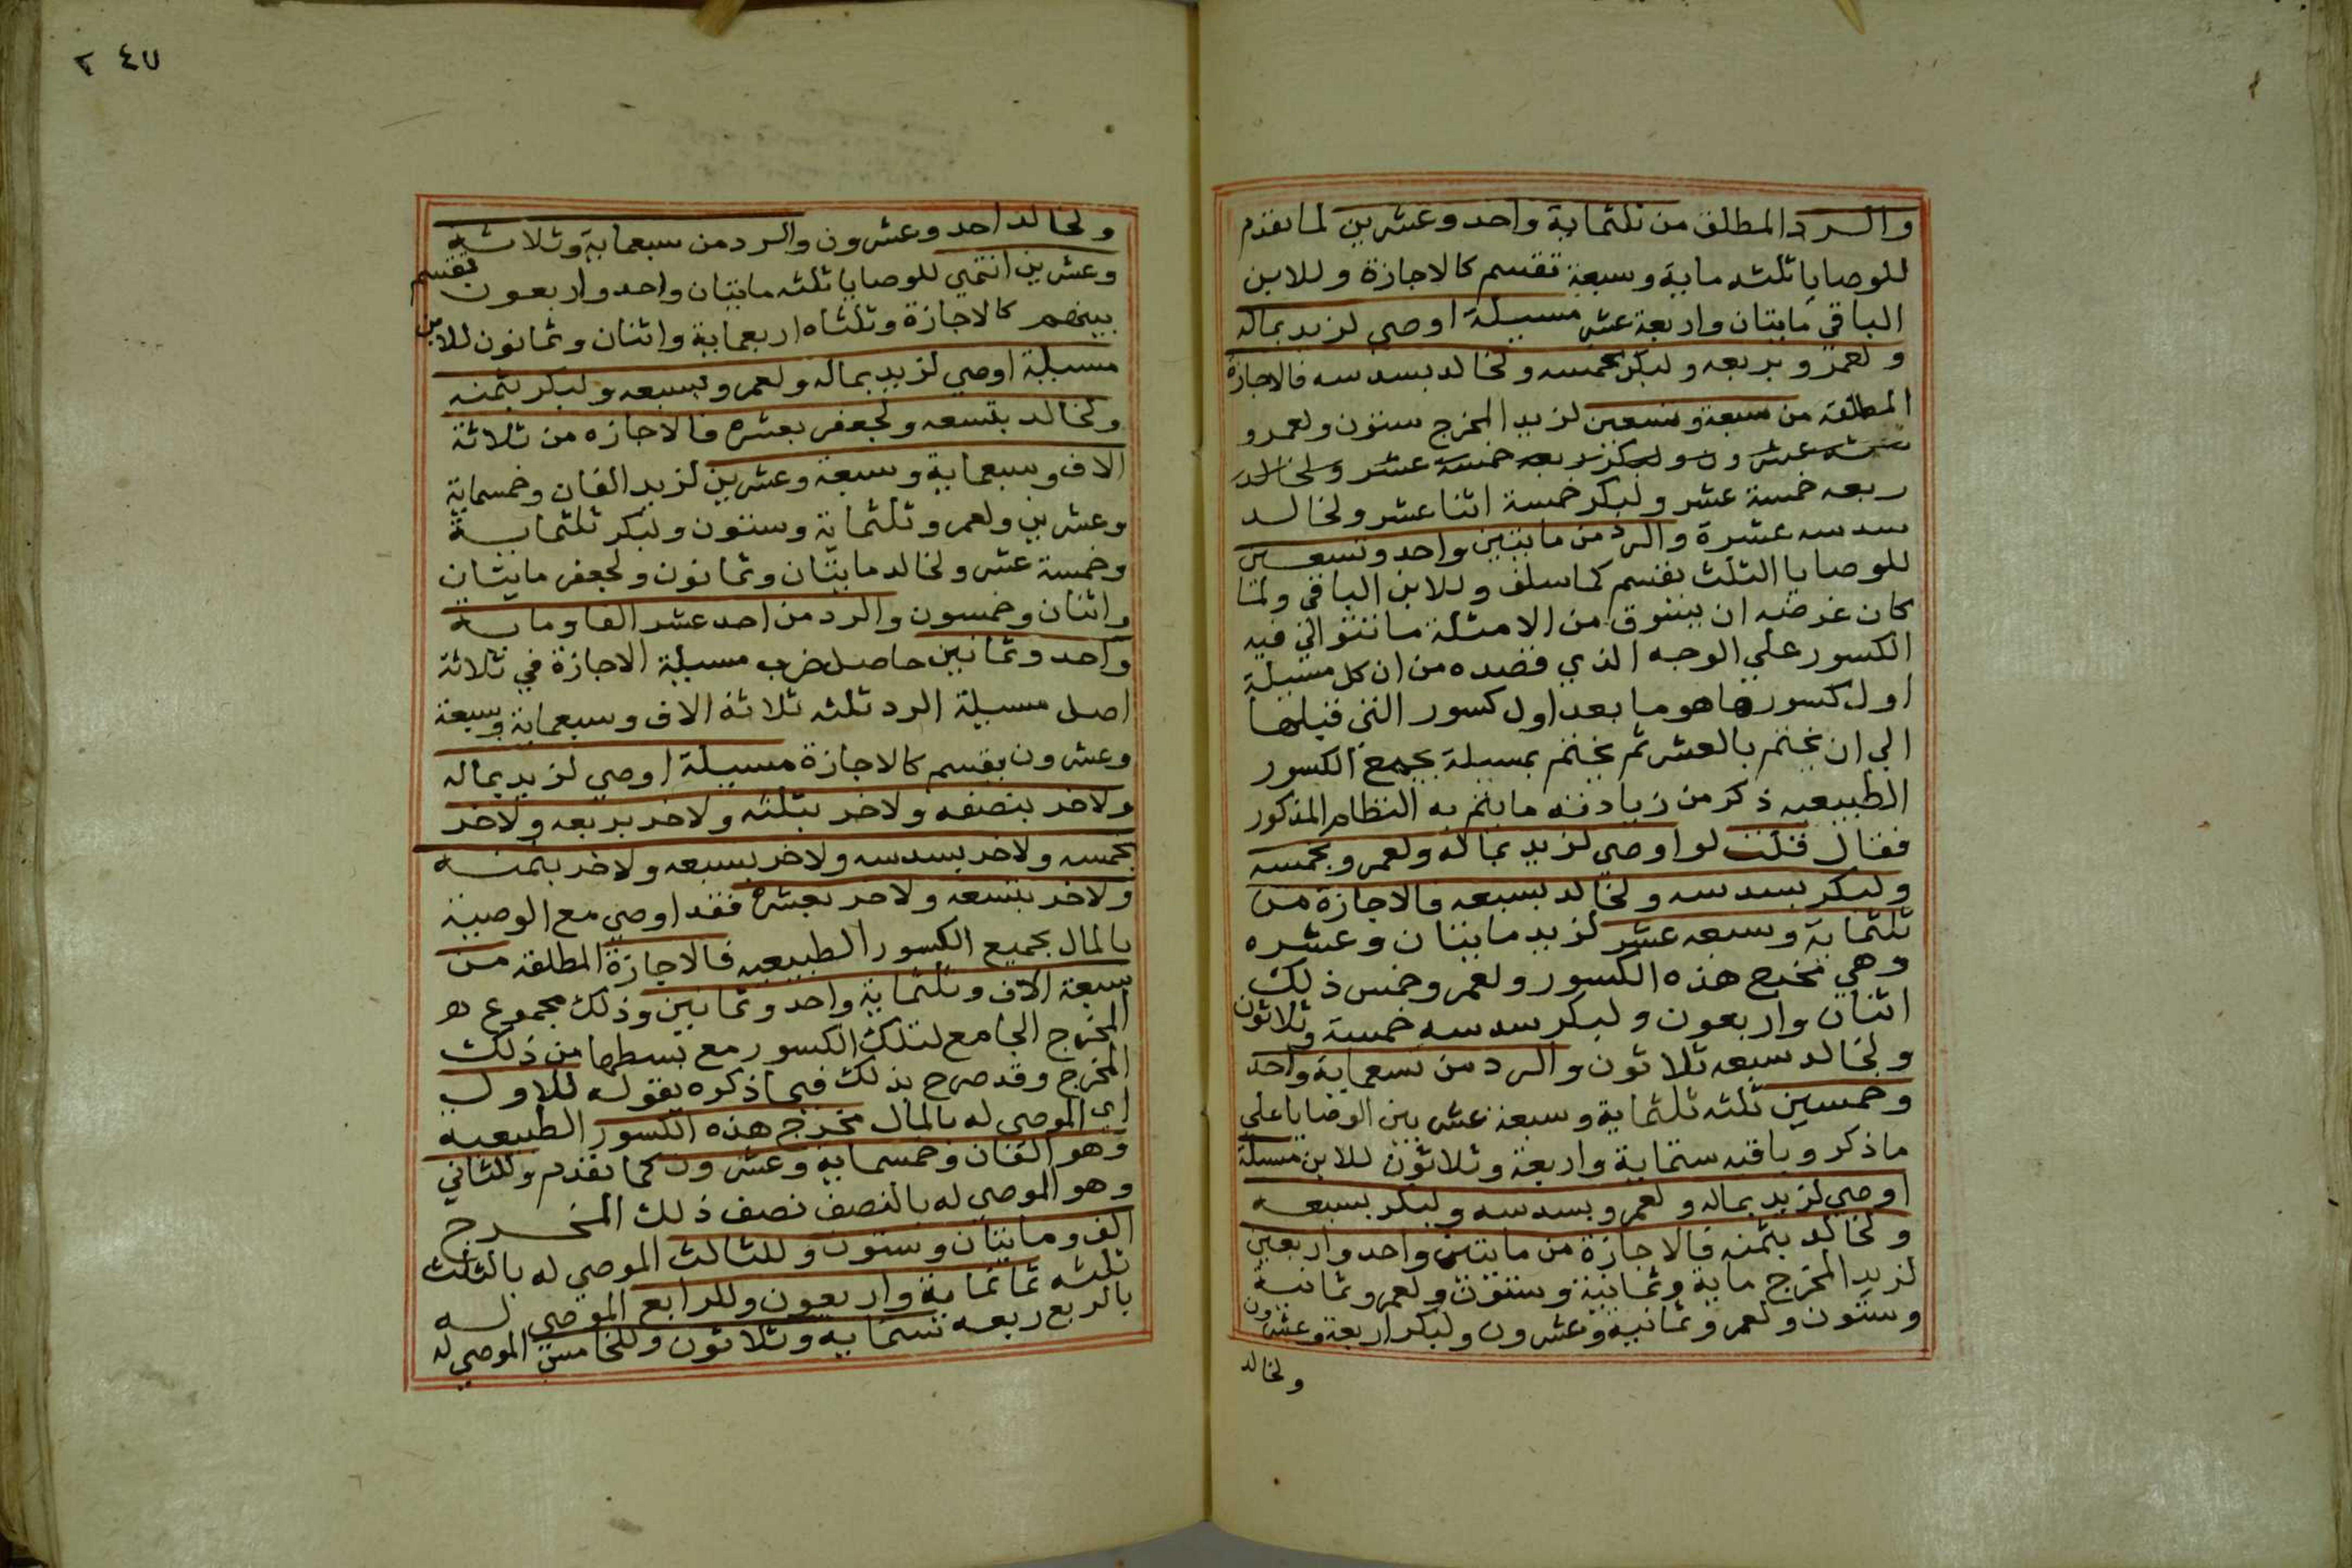 والرد المطلق من ثلثماية واحد وعشرين لما تقدم
للوصايا ثلثه ماية وسبعة تقسم كالاجازة وللابن
الباقي مايتان واربعة عشر مسيلة اوصي لزيد بماله
ولعمرو بربعه ولبكر بخمسه ولخالد بسدسه فالاجازة
المطلقة من سبعة وتسعين لزيد المخرج ستون ولعمرو
عشرون ولبكر ربعه خمسة عشر ولخالد
ربعه خمسة عشر ولبكر خمسة اثنا عشر ولخالد
سدسه عشرة والرد من مايتين واحد وتسعين
للوصايا الثلث يقسم كما سلف وللابن الباقي ولما
كان غرضه ان يسوق من الامثلة ما تتوالي فيه
الكسور علي الوجه الذي قصده من ان كل مسيلة
اول كسورها هو ما بعد اول كسور التي قبلها
الي ان يختم بالعشر ثم يختم بمسيلة بجميع الكسور
الطبيعيه ذكر من زيادته ما يتم به النظام المذكور
فقال قلت لو اوصي لزيد بماله ولعمرو بخمسه
ولبكر بسدسه ولخالد بسبعه فالاجازة من
ثلثماية وسبعه عشر لزيد مايتان وعشره
وهي مخرج هذه الكسور ولعمرو خمس ذلك
اثنان واربعون ولبكر سدسه خمسة وثلاثون
ولخالد سبعه ثلاثون والرد من تسعماية واحد
وخمسين ثلثه ثلثماية وسبعة عشر بين الوصايا علي
ما ذكر وباقيه ستماية واربعة وثلاثون للابن مسيلة
اوصي لزيد بماله ولعمرو بسدسه ولبكر بسبعه
ولخالد بثمنه فالاجازة من مايتين واحد واربعين
لزيد المخرج ماية وثمانية وستون ولعمرو ثمانية
وستون ولعمرو ثمانية وعشرون ولبكر اربعة وعشرون
ولخالد
٢٤٧
ولخالد احد وعشرون والرد من سبعماية وثلاثة
وعشرين انتهي للوصايا ثلثه مايتان واحد واربعون تقسم
بينهم كالاجازة وثلثاه اربعماية واثنان وثمانون للابن
مسيلة اوصي لزيد بماله ولعمرو بسبعه ولبكر بثمنه
ولخالد بتسعه ولجعفر بعشره فالاجازه من ثلاثة
الاف وسبعماية وسبعة وعشرين لزيد الفان وخمسماية
وعشرين ولعمرو ثلثماية وستون ولبكر ثلثماية
وخمسة عشر ولخالد مايتان وثمانون ولجعفر مايتان
واثنان وخمسون والرد من احد عشر الفا وماية
واحد وثمانين حاصل ضرب مسيلة الاجازة في ثلاثة
اصل مسيلة الرد ثلثه ثلاثة الاف وسبعماية وسبعة
وعشرون يقسم كالاجازة مسيلة اوصي لزيد بماله
ولاخر بنصفه ولاخر بثلثه ولاخر بربعه ولاخر
بخمسه ولاخر بسدسه ولاخر بسبعه ولاخر بثمنه
ولاخر بتسعه ولاخر بعشره فقد اوصي مع الوصية
بالمال بجميع الكسور الطبيعيه فالاجازة المطلقه من
سبعة الاف وثلثماية واحد وثمانين وذلك مجموع
المخرج الجامع لتلك الكسور مع بسطها من ذلك
المخرج وقد صرح بذلك فيما ذكره بقوله للاول
اي الموصي له بالمال مخرج هذه الكسور الطبيعيه
وهو الفان وخمسماية وعشرون كما تقدم وللثاني
وهو الموصي له بالنصف نصف ذلك المخرج
الف ومايتان وستون وللثالث الموصي له بالثلث
ثلثه ثمانماية واربعون وللرابع الموصي له
بالربع ربعه ستماية وثلاثون وللخامس الموصي له